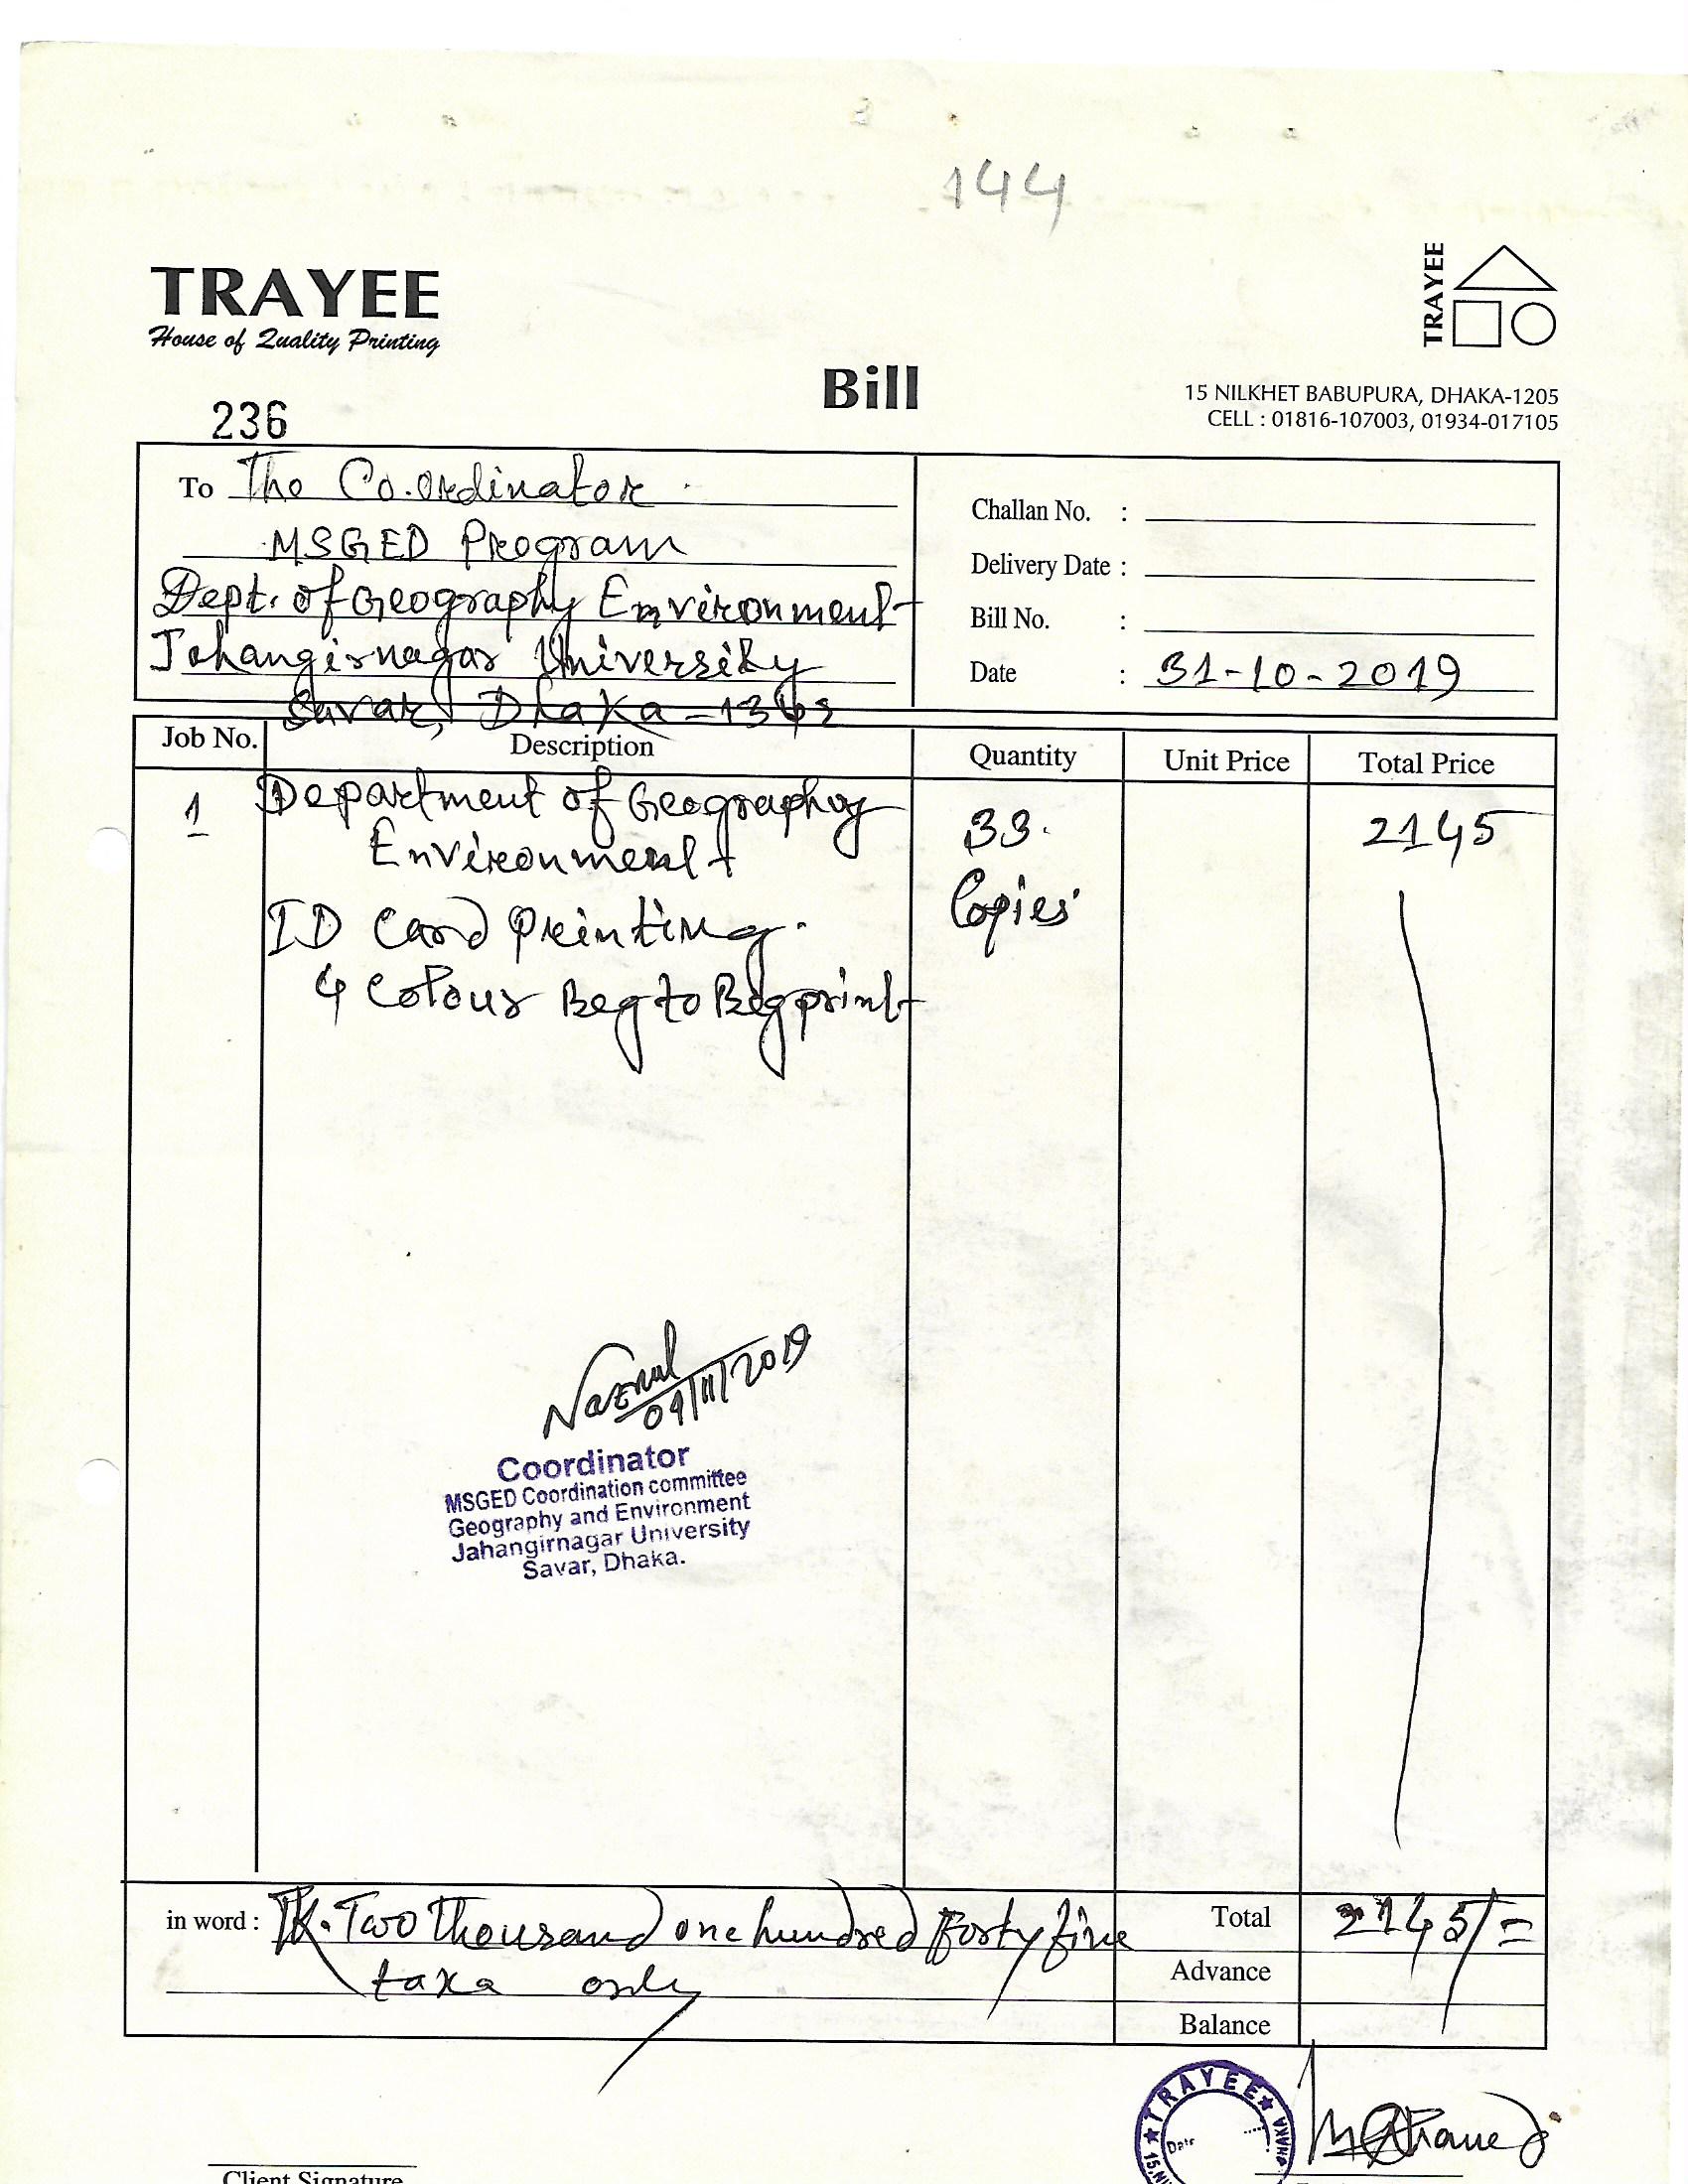 144
TRAYEE
House of Quality Printing
TRAYEE
Bill
15 NILKHET BABUPURA, DHAKA-1205
CELL : 01816-107003, 01934-017105
236
To The Co.ordinator
MSGED Program
Dept. of Geography Environment
Jahangirnagar University
Savar, Dhaka-1342
Challan No. :
Delivery Date :
Bill No. :
Date : 31-10-2019
Job No. Description Quantity Unit Price Total Price
1 Department of Geography 33. 2145
Environment
Copies
ID Card Printing.
4 Colour Beg to Beg print
Nazrul
04/11/2019
Coordinator
MSGED Coordination committee
Geography and Environment
Jahangirnagar University
Savar, Dhaka.
in word : TK. Two Thousand one hundred forty five Total 2145/=
taka only
Advance
Balance
TRAYEE
DHAKA
Date
Client Signature